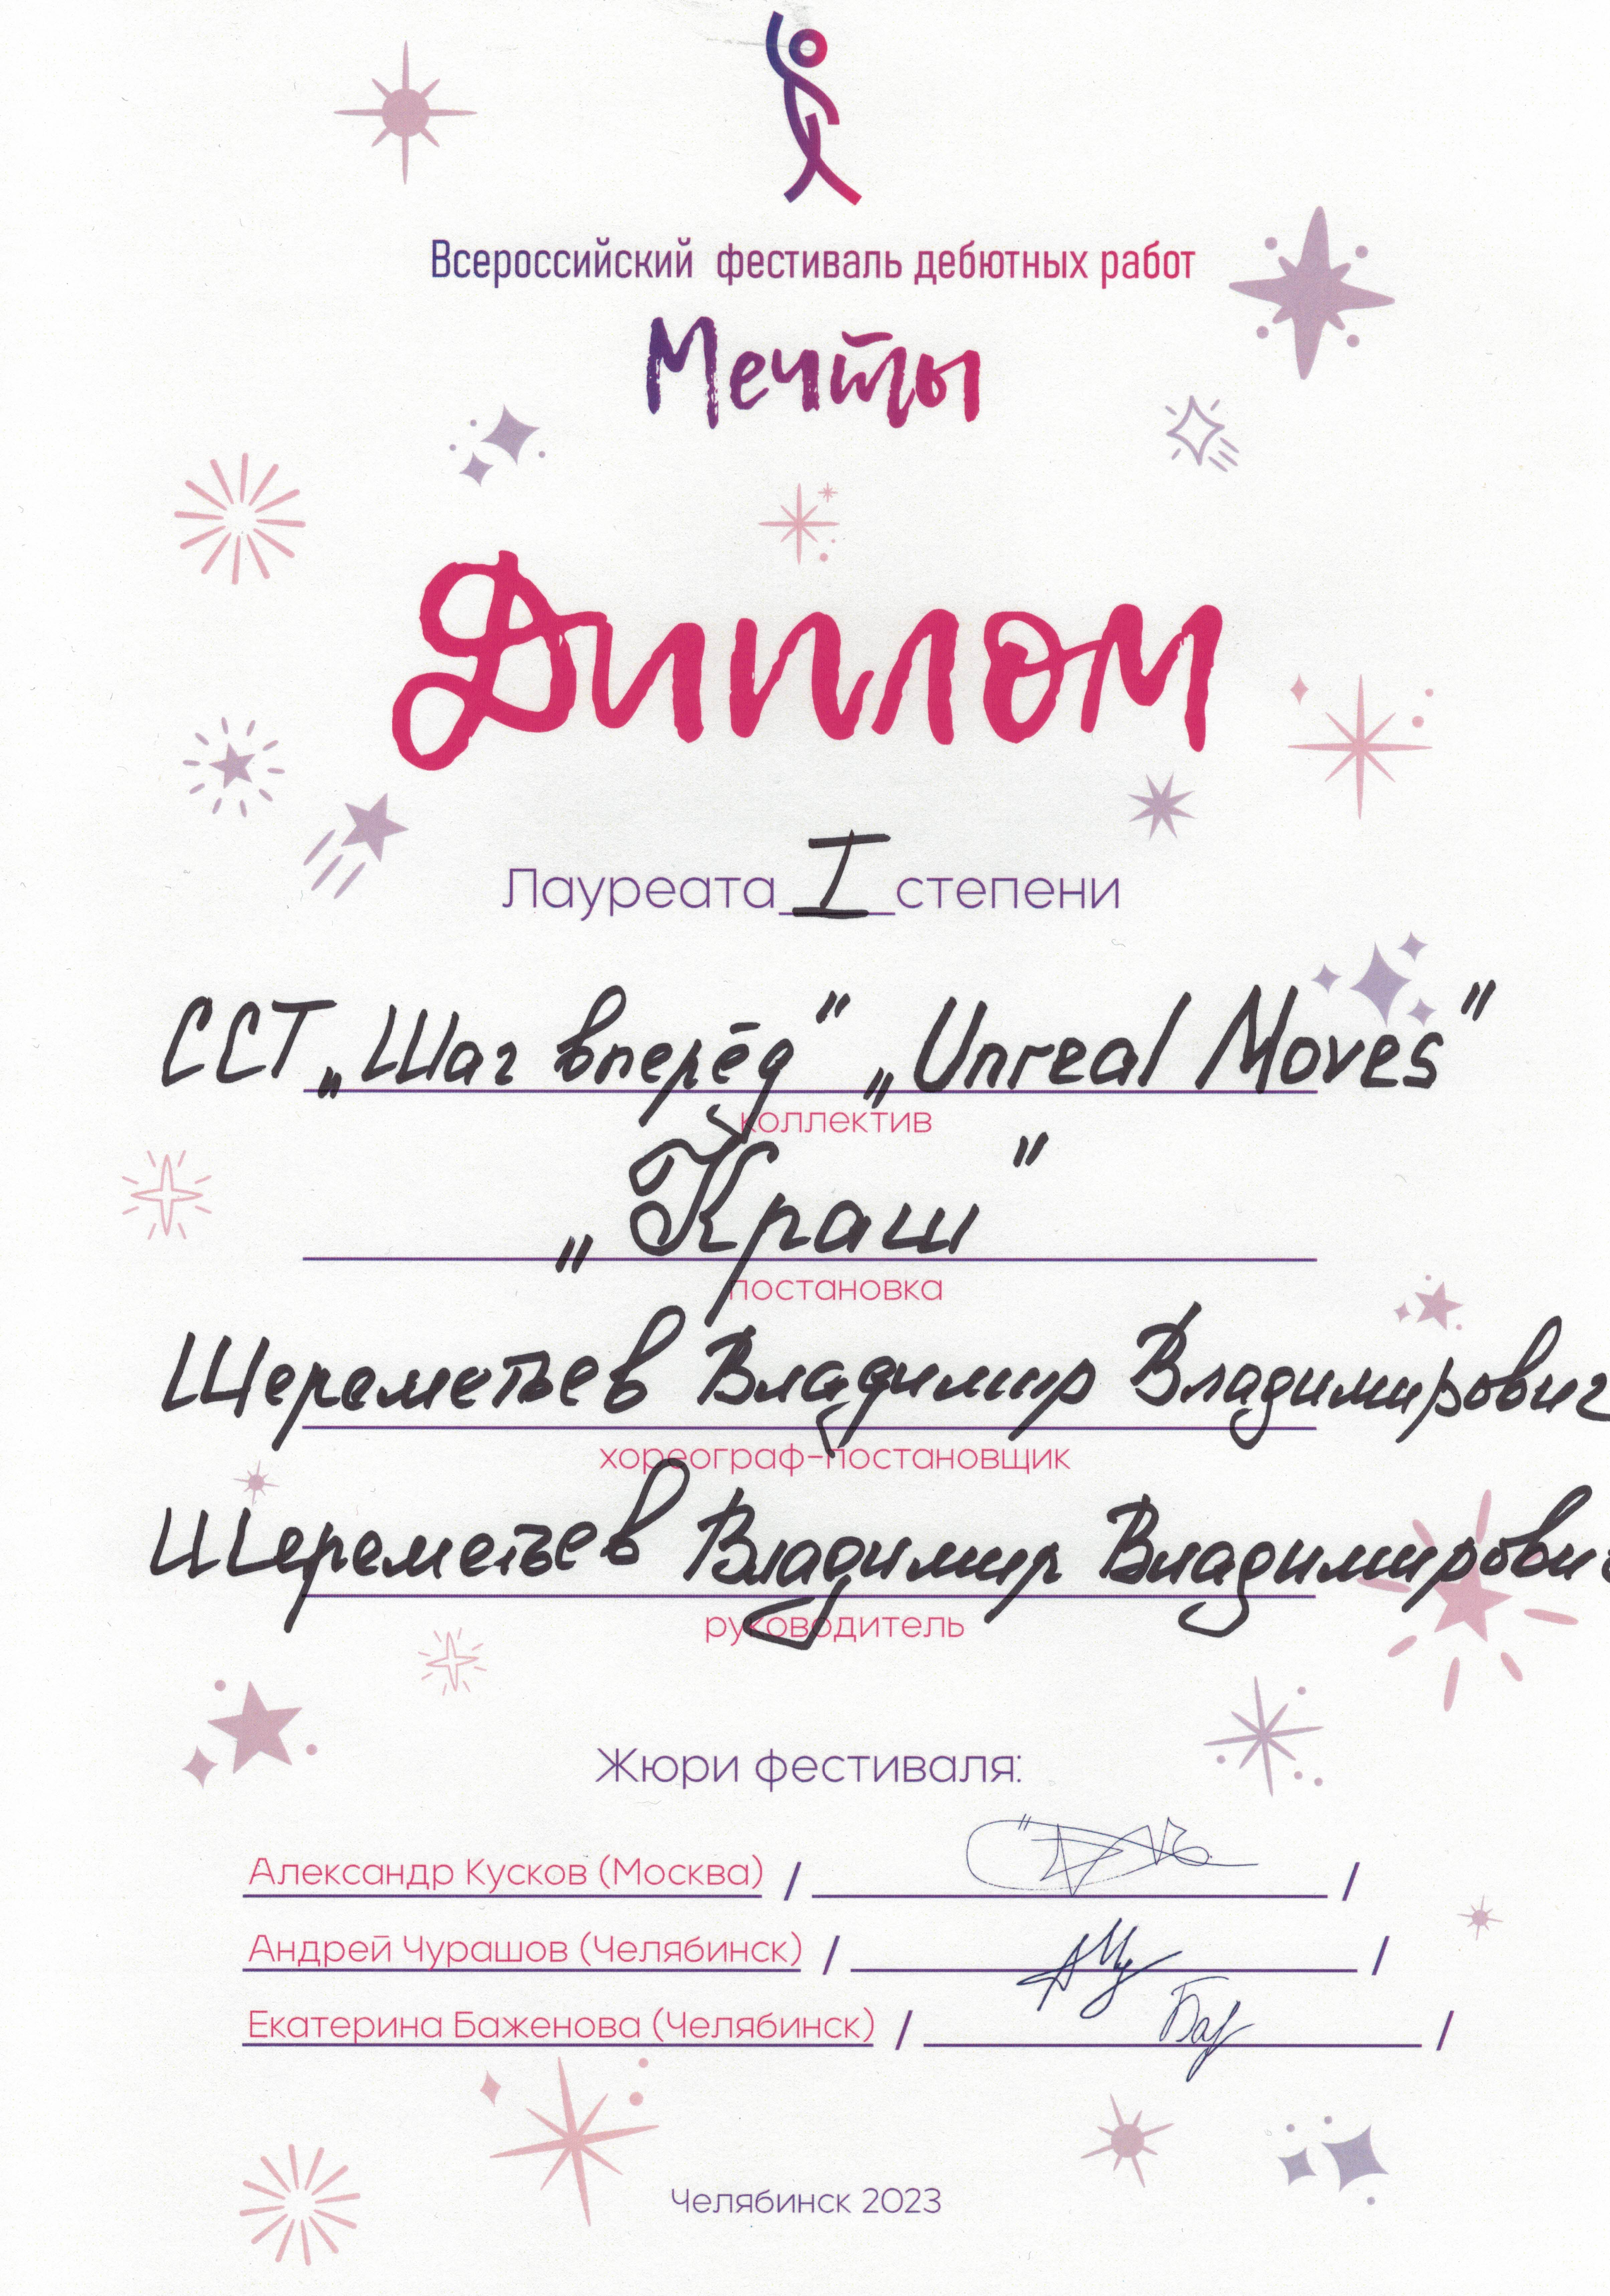 Всероссийский фестиваль дебютных работ
Мечты
Диплом
Лауреата I степени
ССТ „Шаг вперёд" „Unreal Moves"
коллектив
„Краш"
постановка
Шереметьев Владимир Владимирович
хореограф-постановщик
Шереметьев Владимир Владимирович
руководитель
Жюри фестиваля:
Александр Кусков (Москва) / /
Андрей Чурашов (Челябинск) / /
Екатерина Баженова (Челябинск) / /
Челябинск 2023